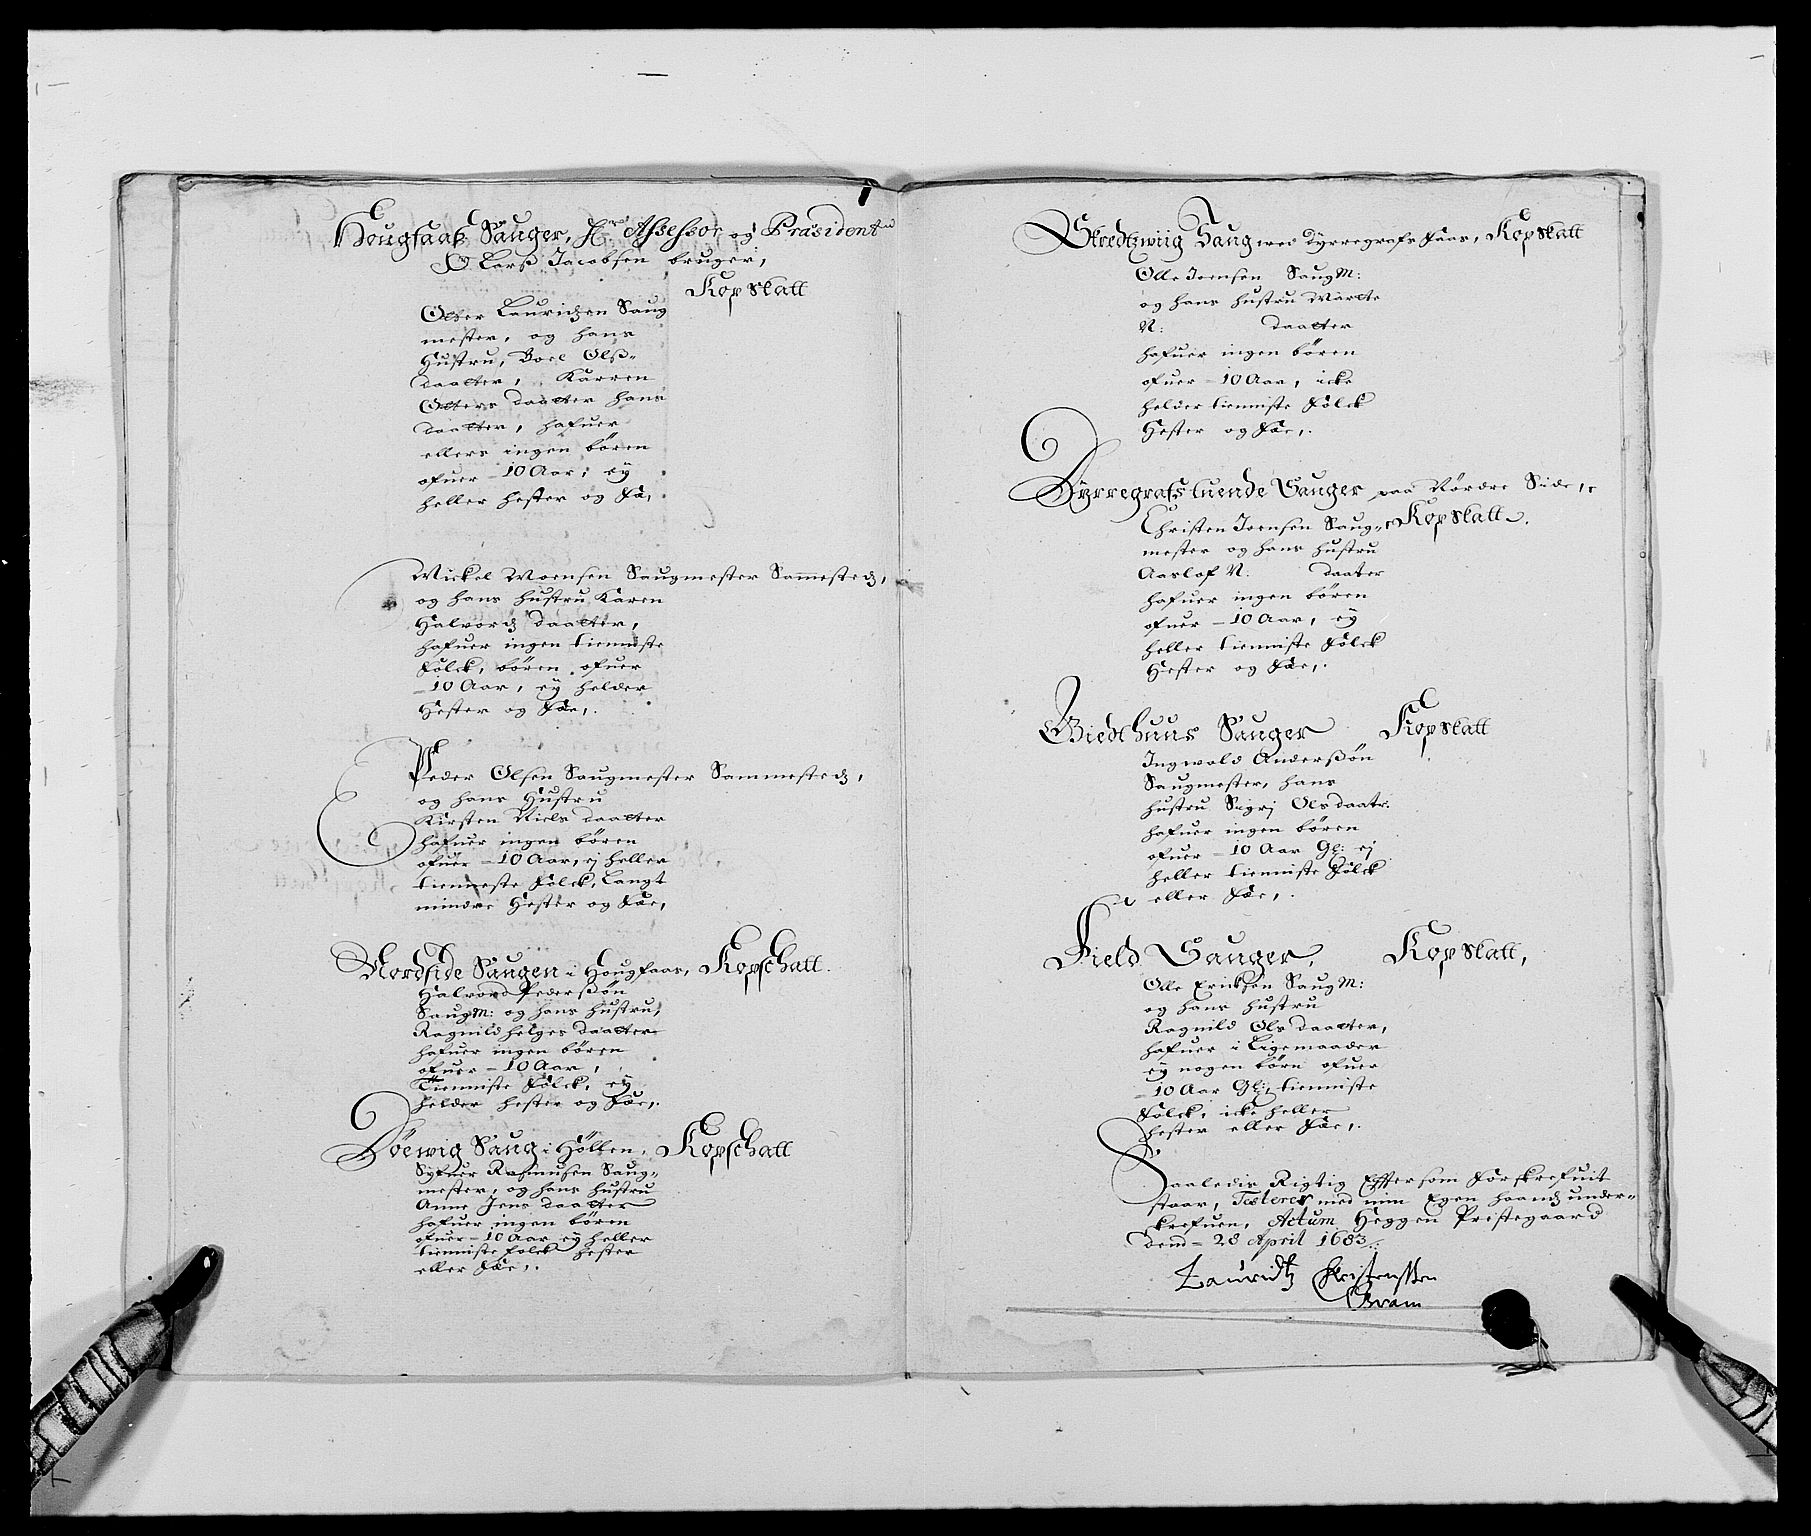 Hougfaas Sauger, Hr Assessor og Præsident
Lars Jacobsen bruger,
Kopskatt
Olter Lauridzen Saug
mester, og hans
Hustru, Boel Olss-
daatter, Karren
Olters daatter hans
daatter, hafuer
ellers ingen bören
ofuer - 10 Aar, ey
heller hester og Fæ,
Mickel Moensen Saugmester Sammestedz,
og hans hustru Karen
Halvordz daatter,
hafuer ingen tienniste
Folck, bören ofuer
- 10 Aar, ey helder
Hester og Fæ,.
Peder Olsen Saugmester Sammestedz,
og hans Hustru
Kirsten Niels daatter
hafuer ingen bören
ofuer - 10 Aar, ej heller
tienneste Folck, Langt
mindre Hester og Fæ,
Nordside Saugen i Hougfaas, Kopschatt.
Halvord Pedersøn
SaugM: og hans hustru,
Ragnild helges daatter
hafuer ingen bören
ofuer - 10 Aar,
Tienniste Folck, ey
helder hester og Fæ,.
Döewig Saug i Holten, Kopschatt
Syfuer Rasmusen Saug-
mester, og hans hustru
Anne Jens daatter
hafuer ingen bören
ofuer - 10 Aar ey heller
tienniste folck hester
eller Fæ,.
Skredswiig Saug wed Dyrregrafs Faas, Kopskatt
Olle Joensen SaugM:
og hans hustru Marte
N: daatter
hafuer ingen bören
ofuer - 10 Aar, icke
helder tienniste Folck
Hester og Fæ,.
Dyrregrafs tuende Sauger paa Nordre Side,
Christen Joensen Saug- Kopskatt.
mester og hans hustru
Aaslof N: daater
hafuer ingen bören
ofuer - 10 Aar, ey
heller tienniste Folck
Hester og Fæ,.
Giedthuus Sauger Kopskatt
Ingwald Anderssön
Saugmester, hans
hustru Sigrj Olsdaatr.
hafuer ingen bören
ofuer - 10 Aar Gl: ej
heller tienniste Folck
eller Fæ,.
Field Sauger, Kopskatt,
Olle Ericksen SaugM:
og hans hustru
Ragnild Ols daatter,
hafuer i Ligemaader
ey nogen börn ofuer
- 10 Aar Gl:, tienniste
Folck, icke heller
hester eller Fæ,.
Saaledis Rigtig Effter som Forskrefuit
staar, Testeres med min Egen haandz under-
skrefuen, Actum Heggen Pristegaard
dend - 28 April 1683.
Lauridtz Christenssen
Gram